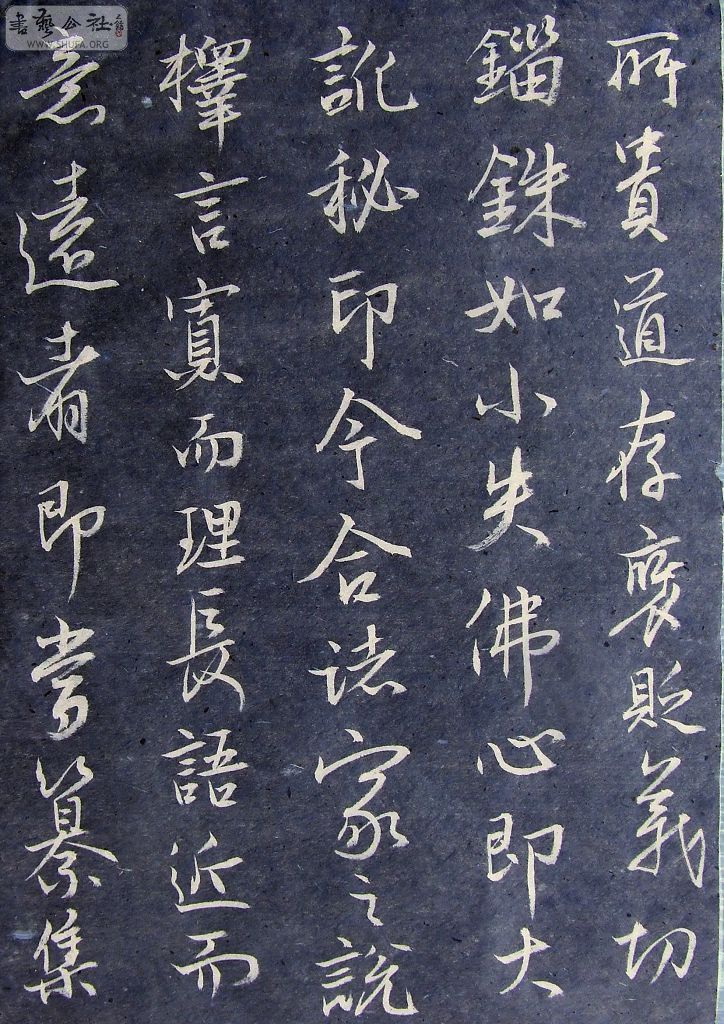 所貴道存褒貶義切
錙銖如小失佛心即大
訛秘印今合諸家之說
擇言寡而理長語近而
意遠者即當纂集
書藝公社
WWW.SHUFA.ORG